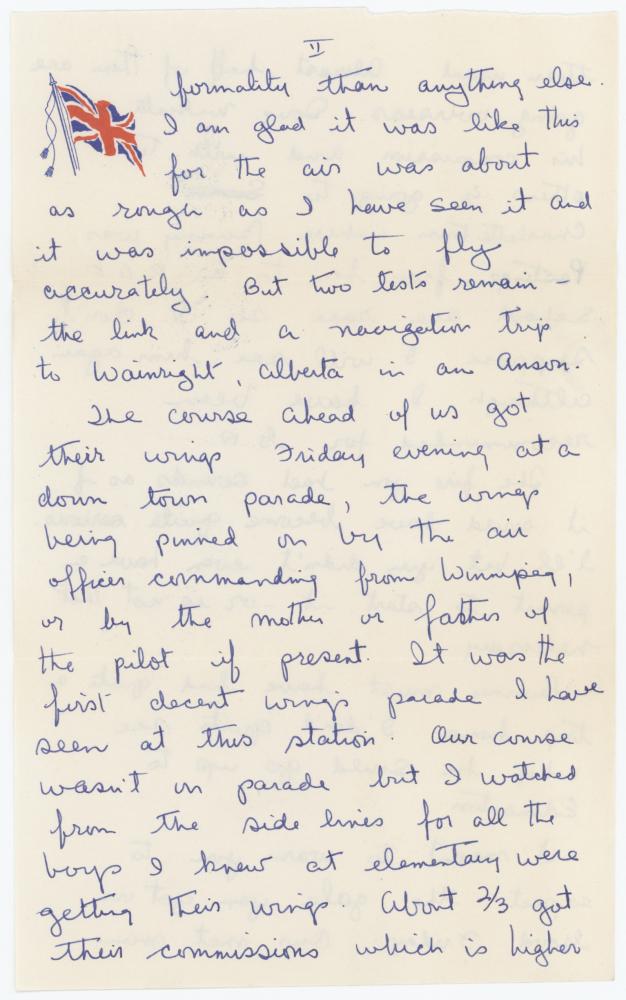 II
formality than anything else.
I am glad it was like this
for the air was about
as rough as I have seen it and
it was impossible to fly
accurately. But two tests remain –
the link and a navigation trip
to Wainright, Alberta in an Anson.
The course ahead of us got
their wings Friday evening at a
down town parade, the wings
being pinned on by the air
officer commanding from Winnipeg,
or by the mother or father of
the pilot if present. It was the
first decent wings parade I have
seen at this station. Our course
wasn't on parade but I watched
from the side lines for all the
boys I knew at elementary were
getting their wings. About 2/3 got
their commissions which is higher